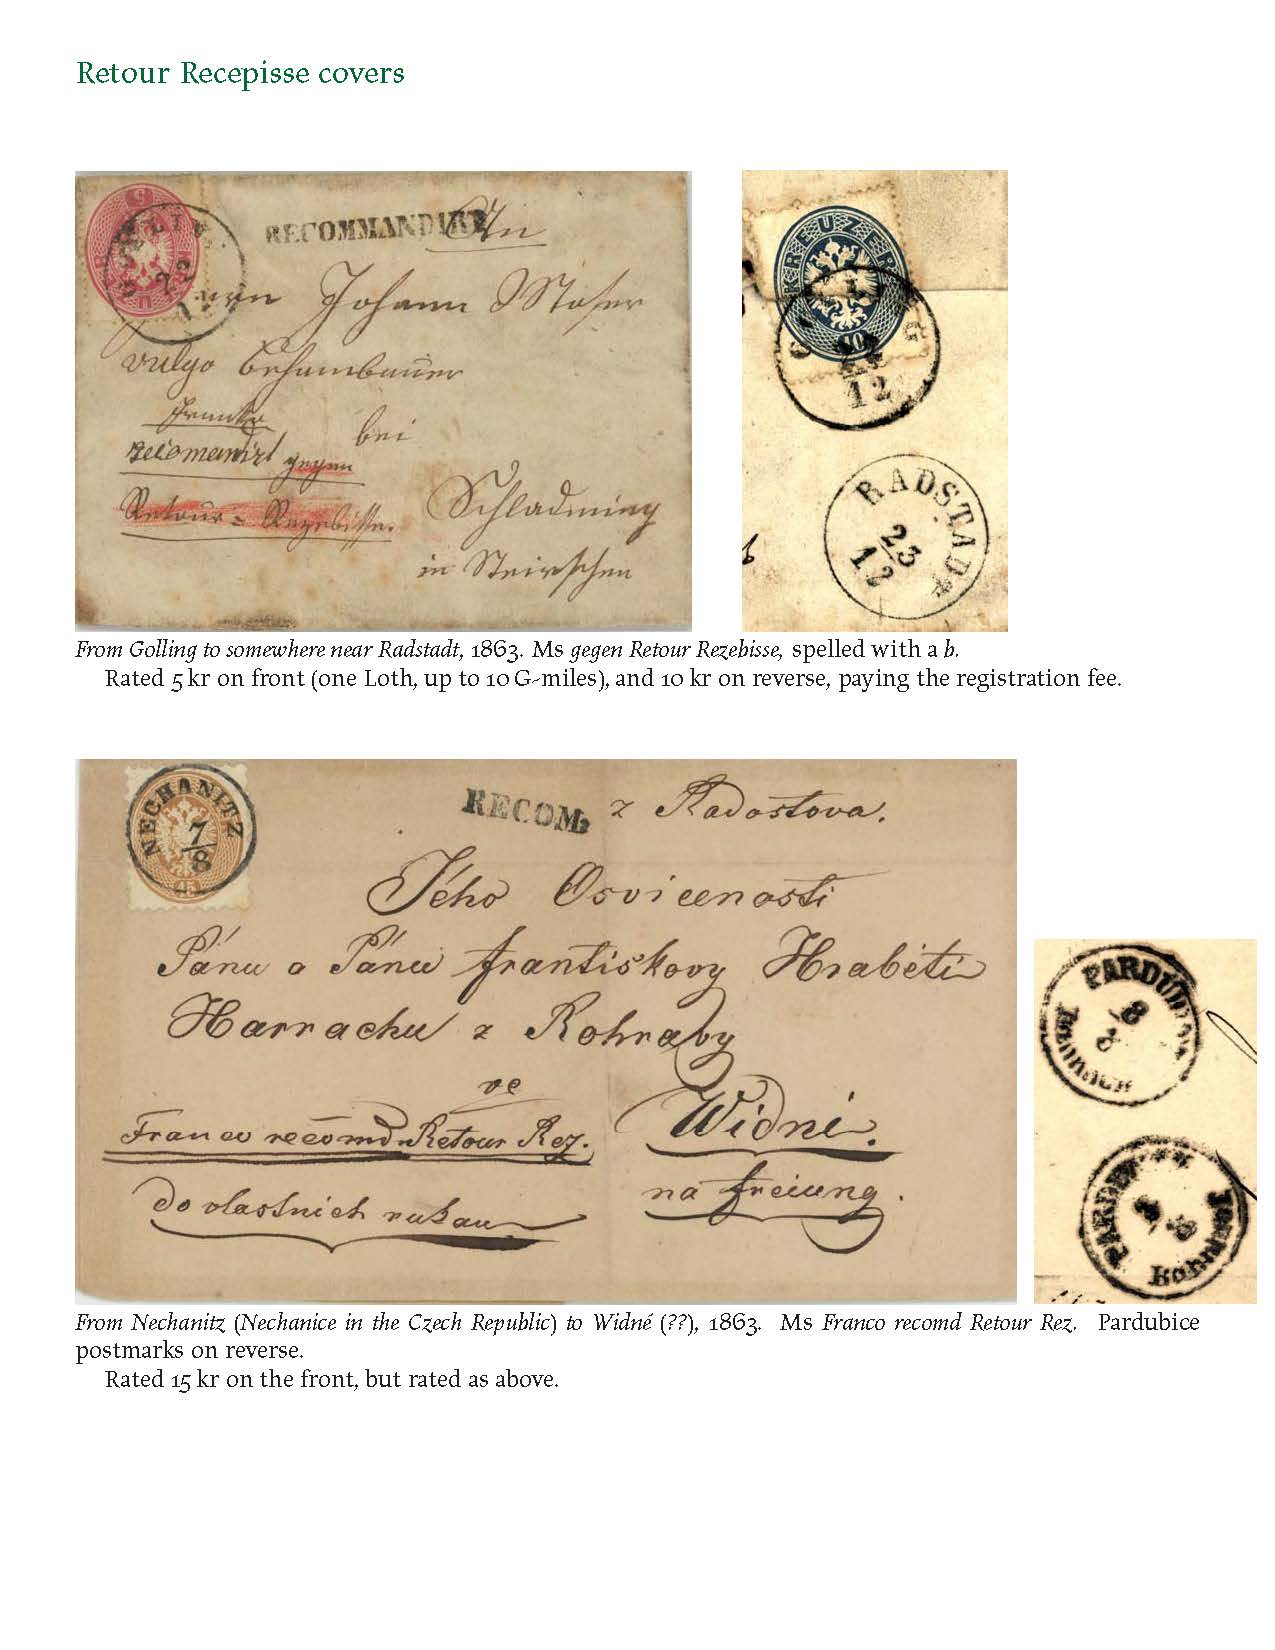 Retour Recepisse covers
RECOMMANDIRT
An
Johann Moser
vulgo
Franko
bei
recomandirt gegen
Retour= Rezebisse.
Schladming
in
22
12
KREUZER
10
22
12
RADSTADT
23
12
From Golling to somewhere near Radstadt, 1863. Ms gegen Retour Rezebisse, spelled with a b.
Rated 5 kr on front (one Loth, up to 10 G-miles), and 10 kr on reverse, paying the registration fee.
NECHANITZ
7
8
15
RECOM.
z Radostova.
Jého Osvícenosti
Pánu o Pánu františkovy Hraběti
Harrachu z Rohraby
ve
Widni.
Franco recomd. Retour Rez.
na freiung.
do vlastnich rukau
PARDUB
8
8
From Nechanitz (Nechanice in the Czech Republic) to Widné (??), 1863. Ms Franco recomd Retour Rez. Pardubice
postmarks on reverse.
Rated 15 kr on the front, but rated as above.